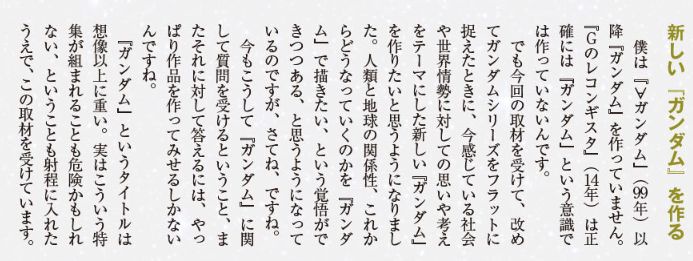 新しい『ガンダム』を作る
僕は『∀ガンダム』（99年）以
降『ガンダム』を作っていません。
『Gのレコンギスタ』（14年）は正
確には『ガンダム』という意識で
は作っていないんです。
でも今回の取材を受けて、改め
てガンダムシリーズをフラットに
捉えたときに、今感じている社会
や世界情勢に対しての思いや考え
をテーマにした新しい『ガンダム』
を作りたいと思うようになりまし
た。人類と地球の関係性、これか
らどうなっていくのかを『ガンダ
ム』で描きたい、という覚悟がで
きつつある、と思うようになって
いるのですが、さてね、ですね。
今もこうして『ガンダム』に関
して質問を受けるということ、ま
たそれに対して答えるには、やっ
ぱり作品を作ってみせるしかない
んですね。
『ガンダム』というタイトルは
想像以上に重い。実はこういう特
集が組まれることも危険かもしれ
ない、ということも射程に入れた
うえで、この取材を受けています。